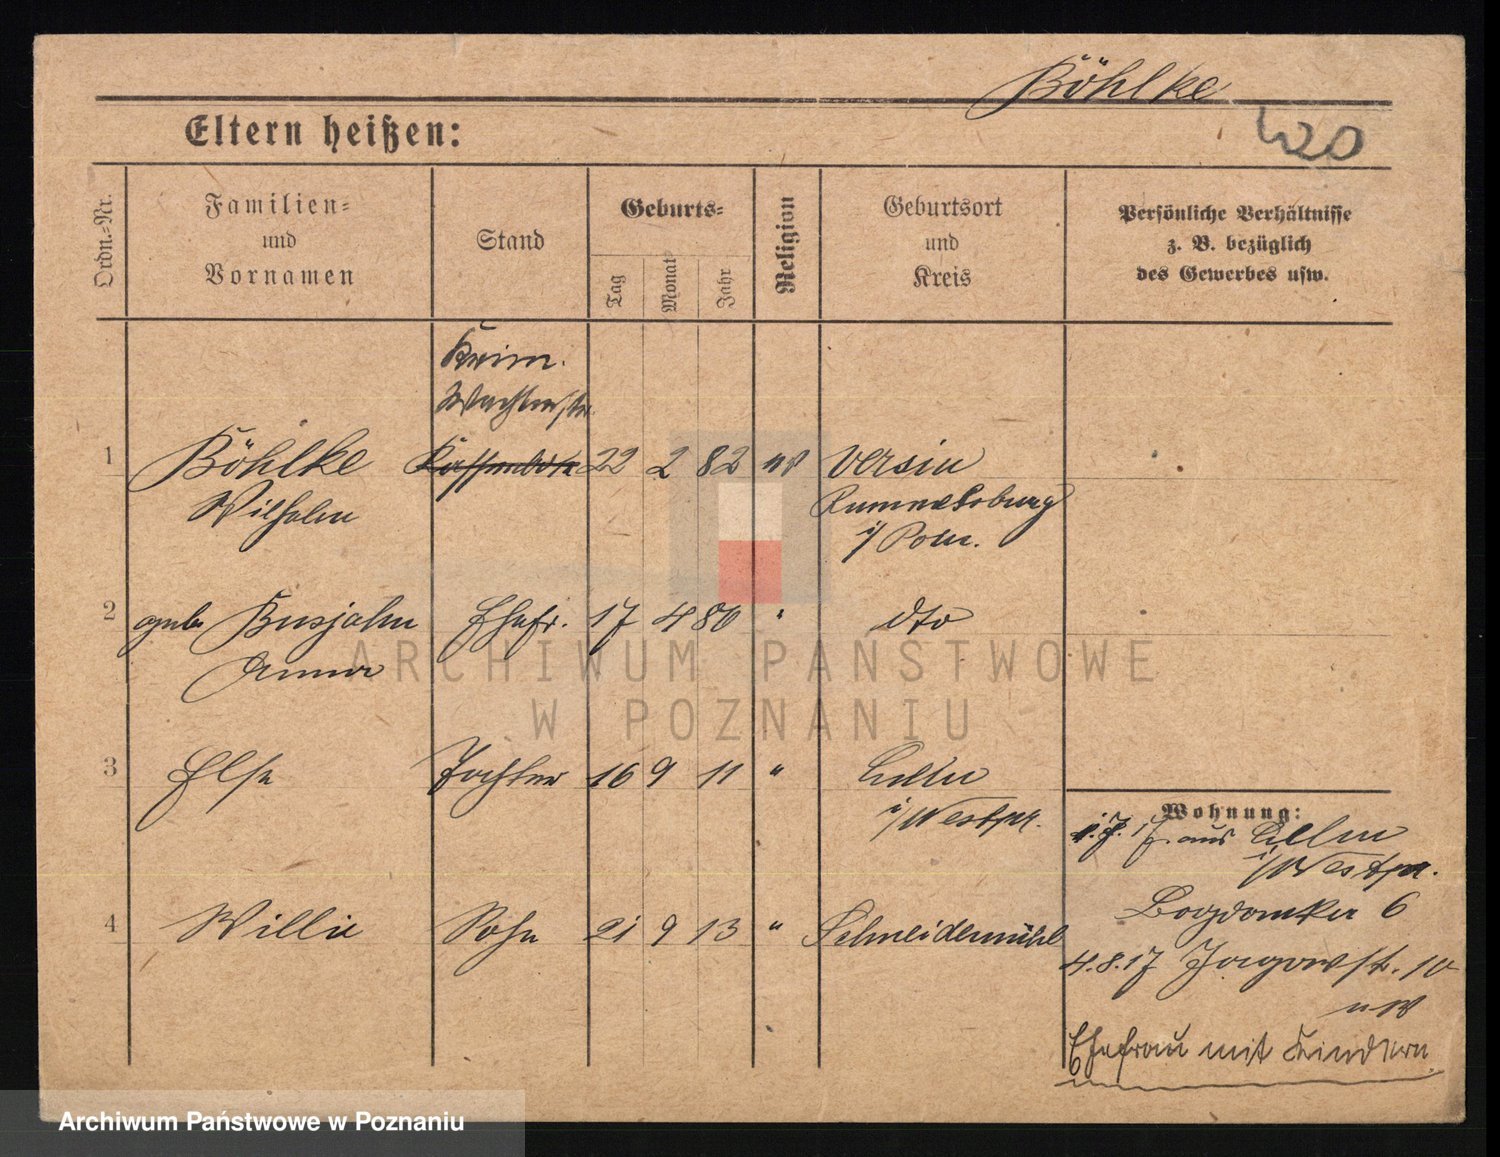 Böhlke
Eltern heißen:
420
Ordn.-Nr.
Familien-
und
Vornamen
Stand
Geburts-
Tag
Monat
Jahr
Religion
Geburtsort
und
Kreis
Persönliche Verhältnisse
z. B. bezüglich
des Gewerbes usw.
Krim.
1 Böhlke 22 2 82 ev Versin
Wilhelm Rummelsburg
i/ Pom.
2 geb. Busjahn Ehefr. 17 4 80 " dto
Anna
3 Else Tochter 16 9 11 " Culm
i/Westpr.
Wohnung:
17. aus Culm
i/Westpr.
4 Willi Sohn 21 9 13 " Schneidemühl
6
4.8.17 Jagowstr. 10
Ehefrau mit Kindern
ARCHIWUM PAŃSTWOWE
W POZNANIU
Archiwum Państwowe w Poznaniu